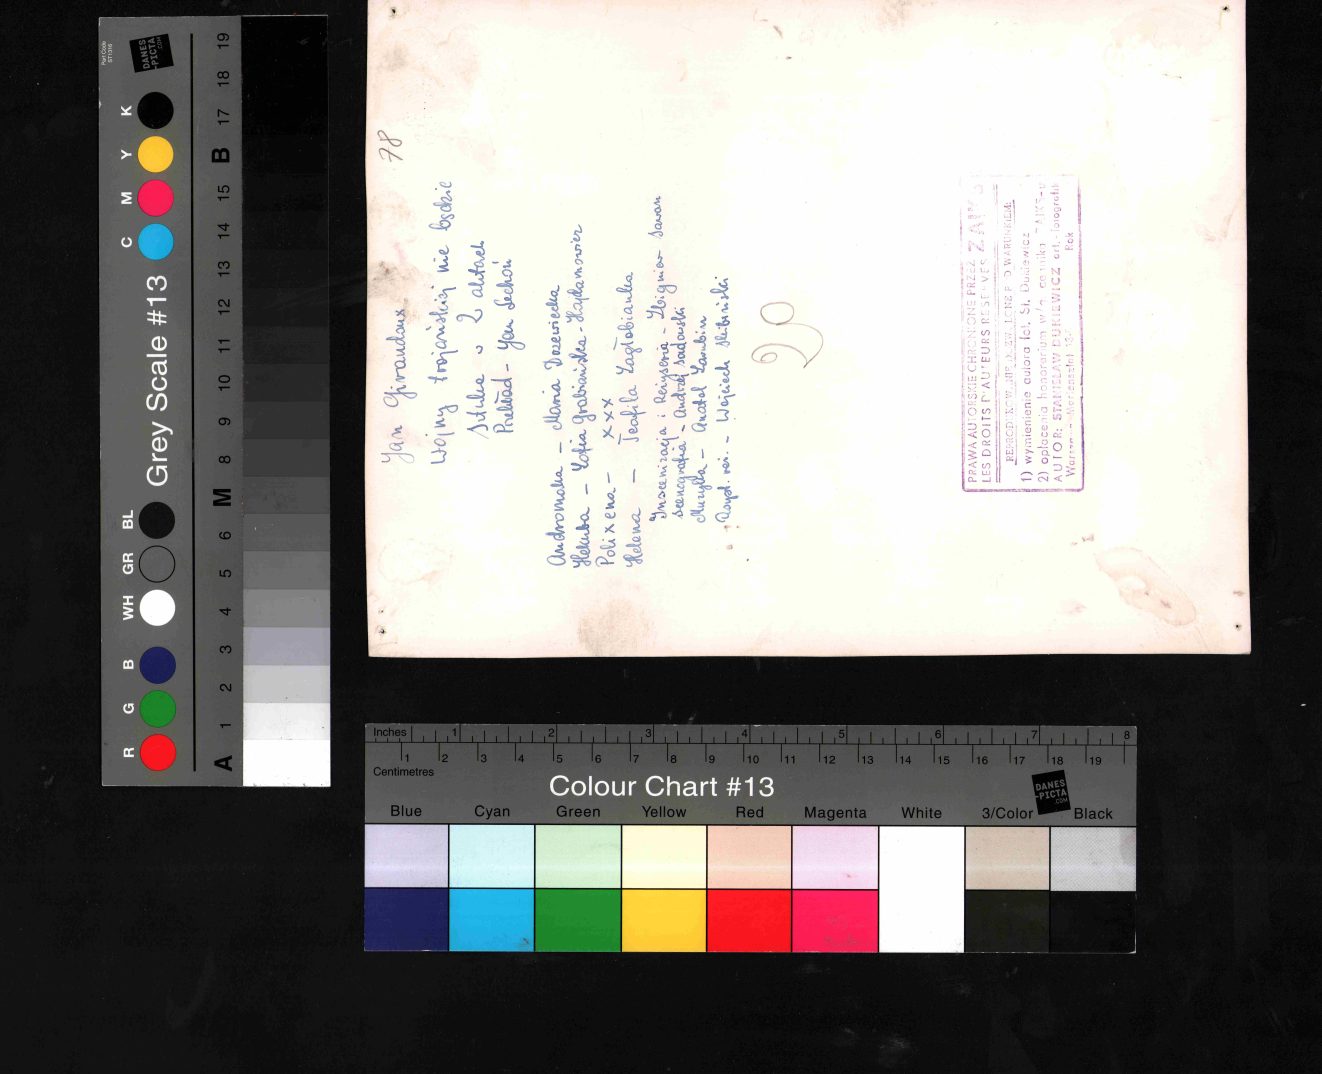 78
Jan Giraudoux
Wojny trojańskiej nie będzie
Sztuka w 2 aktach
Przekład - Jan Lechoń
Andromaka - Maria Drzewiecka
Hekuba - Zofia Grabińska-Hajdamowicz
Polixena - xxx
Helena - Teofila Zagłobianka
Inscenizacja i Reżyseria - Zbigniew Sawan
Scenografia - Andrzej Sadowski
Muzyka - Anatol Zarubin
Asyst. reż. - Wojciech Skibiński
20
PRAWA AUTORSKIE CHRONIONE PRZEZ
LES DROITS D'AUTEURS RESERVÉS
REPRODUKOWANIE DOZWOLONE POD WARUNKIEM:
1) wymienienie autora fot. St. Dukiewicz
2) opłacenia honorarium w/g cennika
AUTOR: STANISŁAW DUKIEWICZ art.-fotografik
Rok
Part Code
ST1316
DANES
-PICTA
.COM
Grey Scale #13
R G B WH GR BL C M Y K
A 1 2 3 4 5 6 M 8 9 10 11 12 13 14 15 B 17 18 19
Inches 1 2 3 4 5 6 7 8
1 2 3 4 5 6 7 8 9 10 11 12 13 14 15 16 17 18 19
Centimetres
Colour Chart #13
DANES
-PICTA
.COM
Blue Cyan Green Yellow Red Magenta White 3/Color Black